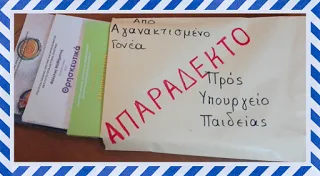 Από
Αγανακτισμένο
Γονέα
ΑΠΑΡΑΔΕΚΤΟ
Πρός
Υπουργείο
Παιδείας
Θρησκευτικά